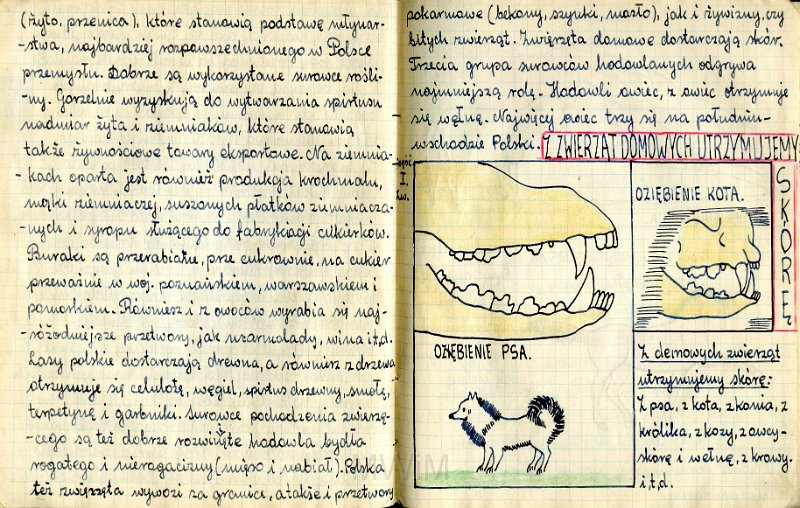 (żyto, przenica), które stanowią podstawę młynar-
-stwa, najbardziej rozpowszechnionego w Polsce
przemysłu. Dobrze są wykorzystane surowce rośli-
-ny. Gorzelnie wyzyskują do wytwarzania spirtusu
nadmiar żyta i ziemniaków, które stanowią
także żywnościowe towary eksportowe. Na ziemnia-
-kach oparta jest również produkcja krochmalu,
mąki ziemniaczej, suszonych płatków ziemniacza-
-nych i syropu służącego do fabrykacji cukierków.
Buraki są przerabiane, prze cukrownie, na cukier
przeważnie w woj. poznańskiem, warszawskiem i
pomorkiem. Również i z owoców wyrabia się naj-
-różrodniejsze przetwory, jak marmolady, wina i t.d.
Lasy polskie dostarczają drewna, a również z drzewa
otrzymuje się celulozę, węgiel, spirtus drzewny, smołę,
terpetynę i garbniki. Surowce pochodzenia zwierzę-
-cego są też dobrze rozwinięte hodowla bydła
rogatego i nierogacizny (mięso i nabiał). Polska
też zwierzęta wywozi za granice, a także i przetwory
pokarmowe (bekony, szynki, masło), jak i żywizny, czy
bitych zwierząt. Zwierzęta domowe dostarczają skór.
Trzecia grupa surowców hodowlanych odgrywa
najmniejszą rolę. Hodowli owiec, z owiec otrzymuje
się wełnę. Najwięcej owiec trzy się na południu-
-wschodzie Polski.
Z ZWIERZĄT DOMOWYCH UTRZYMUJEMY
SKÓRĘ
I.
OZIĘBIENIE KOTA.
OZIĘBIENIE PSA.
Z domowych zwierząt
utrzymujemy skórę:
Z psa, z kota, z konia, z
królika, z kozy, z owcy-
skórę i wełnę, z krowy.
i t.d.
MWM